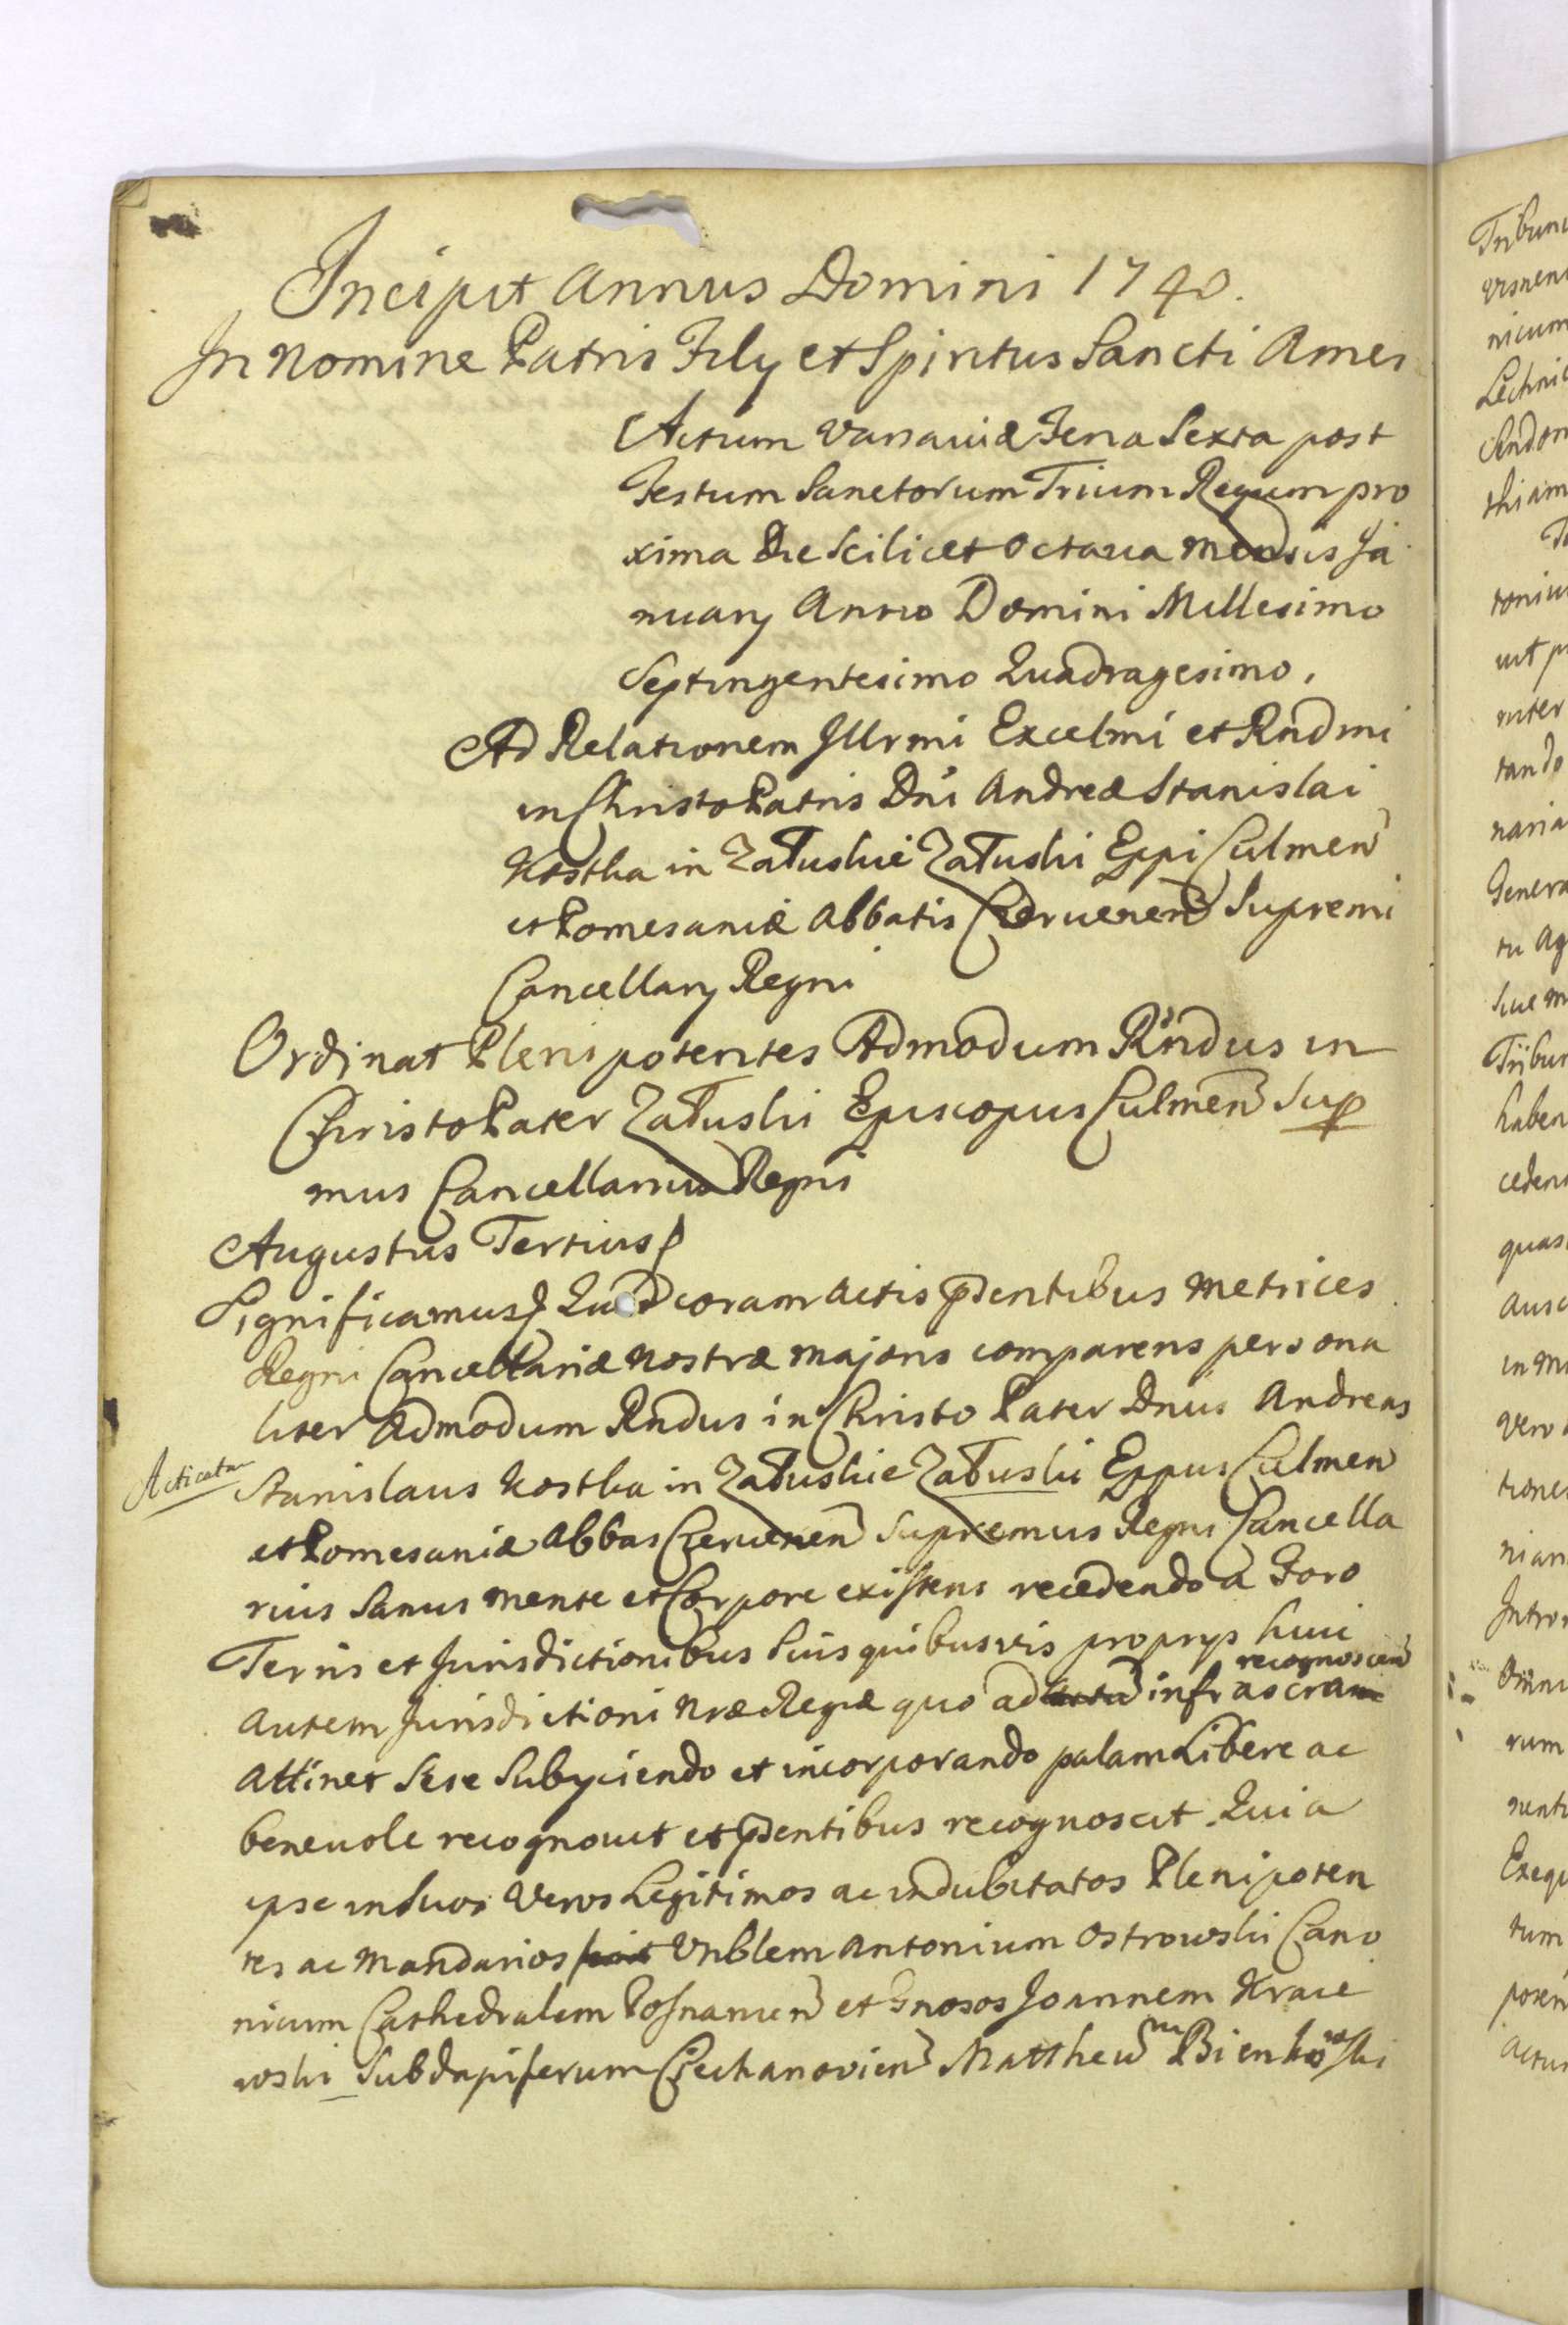 Incipit Annus Domini 1740.
In Nomine Patris Fily et Spiritus Sancti Amen
Actum Varsaviæ Feria Sexta post
Festum Sanctorum Trium Regum pro
xima Die Scilicet Octava Mensis Ja
nuary Anno Domini Millesimo
Septingentesimo Quadragesimo.
Ad Relationem Illrmi Excelmi et Rndmi
in Christo Patris Dni Andreæ Stanislai
Kostka in Załuskie Załuski Eppi Culmen
et Pomesaniæ Abbatis Czervenen Supremi
Cancellary Regni
Ordinat Plenipotentes Admodum Rndus in
Christo Pater Załuski Episcopus Culmen Sup
mus Cancellarius Regni
Augustus Tertius
Significamus Quod coram Actis pdentibus Metrices
Regni Cancellariæ Nostræ Majoris comparens persona
liter Admodum Rndus in Christo Pater Dnus Andreas
Acticatur
Stanislaus Kostka in Załuskie Załuski Eppus Culmen
et Pomesaniæ Abbas Czervenen Supremus Regni Cancella
rius Sanus mente et Corpore existens recedendo a Foro
Terris et Jurisdictionibus Suis quibusvis proprys huic
recognoscen
autem Jurisdictioni Nræ Regiæ quo ad infrascram
attinet Sese Subyciendo et incorporando palam Libere ac
benevole recognovit et pdentibus recognoscit Quia
ipse in Suos Veros Legitimos ac indubitatos Plenipoten
tes ac Mandarios Vnblem Antonium Ostrowski Cano
nicum Cathedralem Posnanien et Gnosos Joannem Kraie
wski Subdapiferum Ciechanovien Mattheum Bienkowski